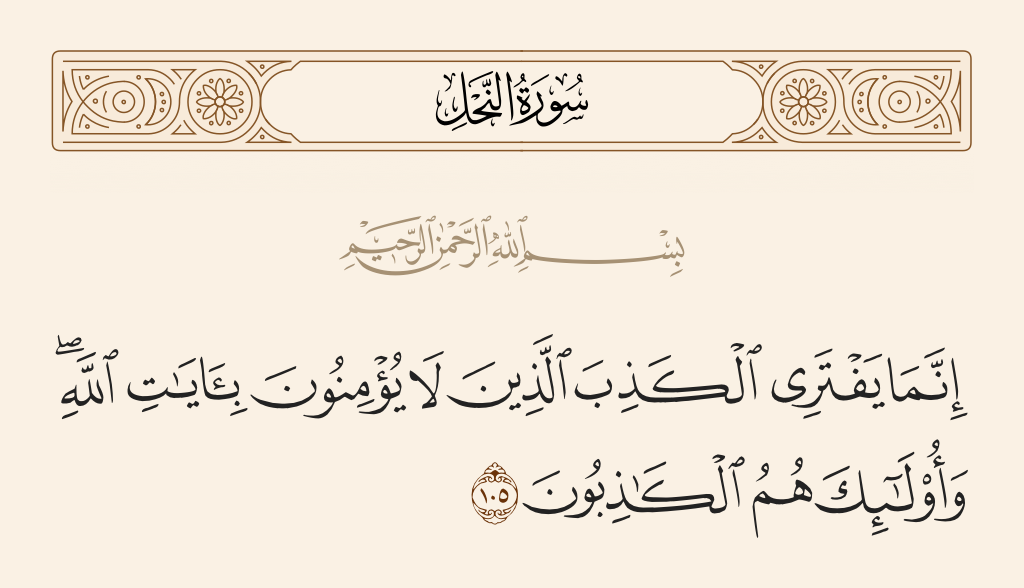 سُورَةُ النَّحْلِ
بِسْمِ ٱللَّهِ ٱلرَّحْمَٰنِ ٱلرَّحِيمِ
إِنَّمَا يَفْتَرِى ٱلْكَذِبَ ٱلَّذِينَ لَا يُؤْمِنُونَ بِـَٔايَـٰتِ ٱللَّهِ ۖ
وَأُو۟لَـٰٓئِكَ هُمُ ٱلْكَـٰذِبُونَ ١٠٥